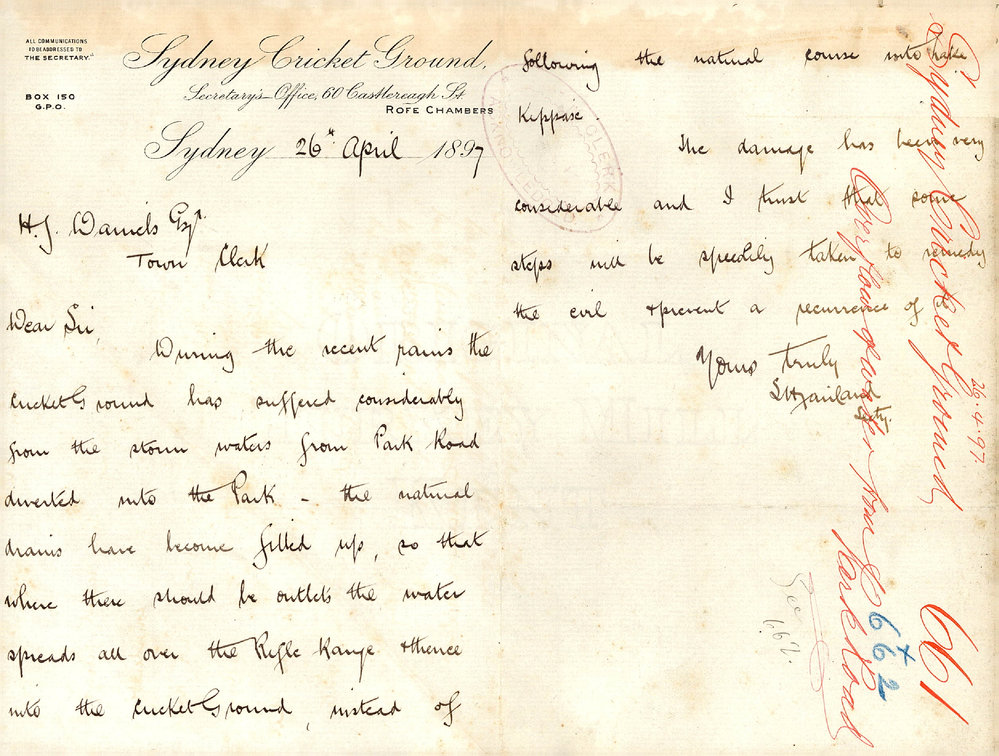 ALL COMMUNICATIONS
TO BE ADDRESSED TO
THE SECRETARY.
BOX 150
G.P.O.
Sydney Cricket Ground,
Secretary's Office, 60 Castlereagh St
ROFE CHAMBERS
Sydney 26th April 1897
H.J. Daniels Esqr.
Town Clerk
Dear Sir,
During the recent rains the
Cricket Ground has suffered considerably
from the storm waters from Park Road
diverted into the Park – the natural
drains have become filled up, so that
where there should be outlets the water
spreads all over the Rifle Range & thence
into the Cricket Ground, instead of
following the natural course into Lake
Kippax.
The damage has been very
considerable and I trust that some
steps will be speedily taken to remedy
the evil & prevent a recurrence of
Yours truly
Secty.
CLERK
Sydney Cricket Ground,
26.4.97.
Overflow of water from
Park Road
661
6 x
662
See
662.